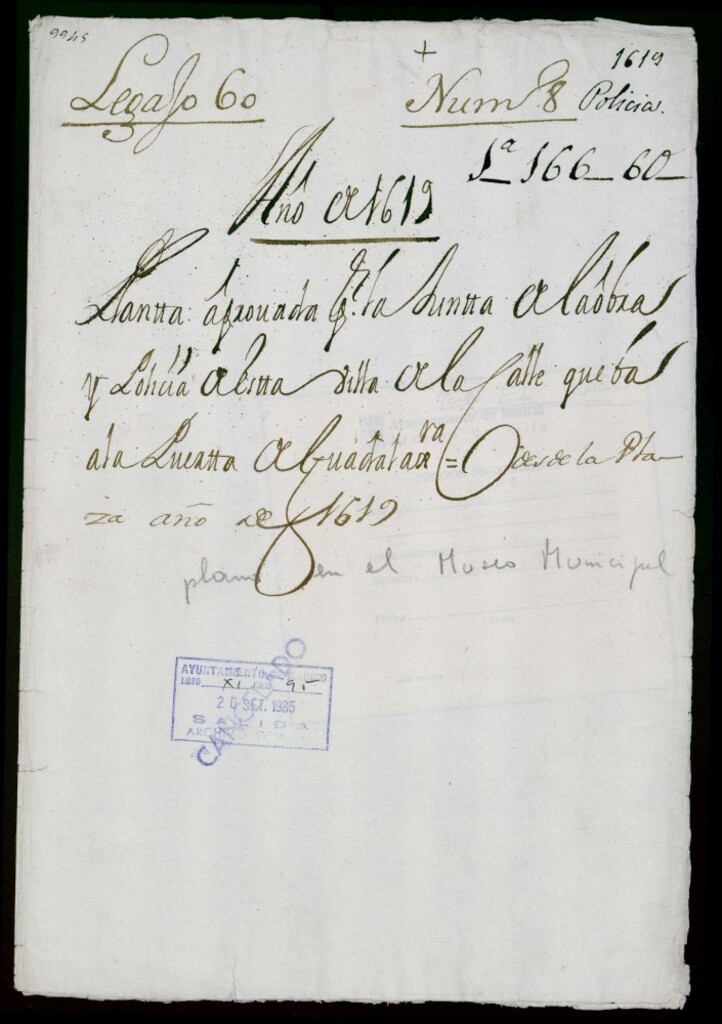 9945
+
1619
Legajo 60
Num 8 Policia.
1ª 166-60-
Año de 1619
Plantta aprouada Pr. la Juntta de la obras
y Policia de estta Villa de la Calle que ba
a la Puertta de Guadalaxra = desde la Pla-
za año de 1619
plano en el Museo Municipal
AYUNTAMIENTO DE MADRID
LIBRO XI FOLIO 95
20 SET. 1985
SALIDA
ARCHIVO
CANCELADO